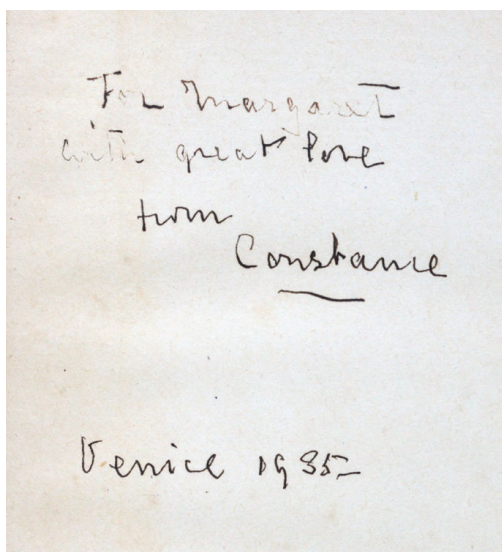 For Margaret
with great love
from
Constance
Venice 1935